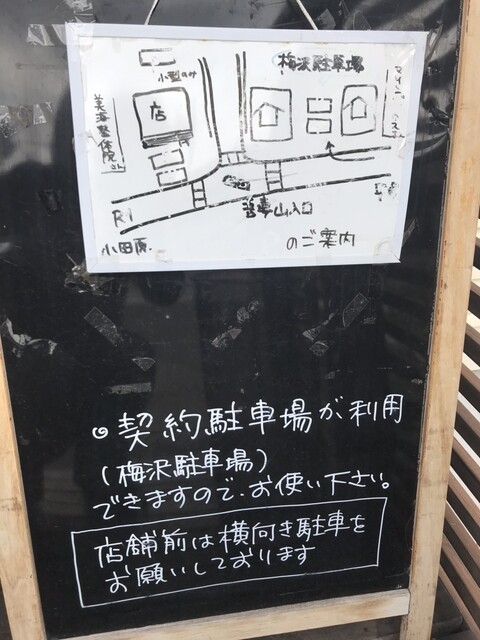 梅沢駐車場
小型のみ
店
美海整体院さん
R1
小田原
入口
のご案内
契約駐車場が利用
(梅沢駐車場)
できますので、お使い下さい。
店舗前は横向き駐車を
お願いしております